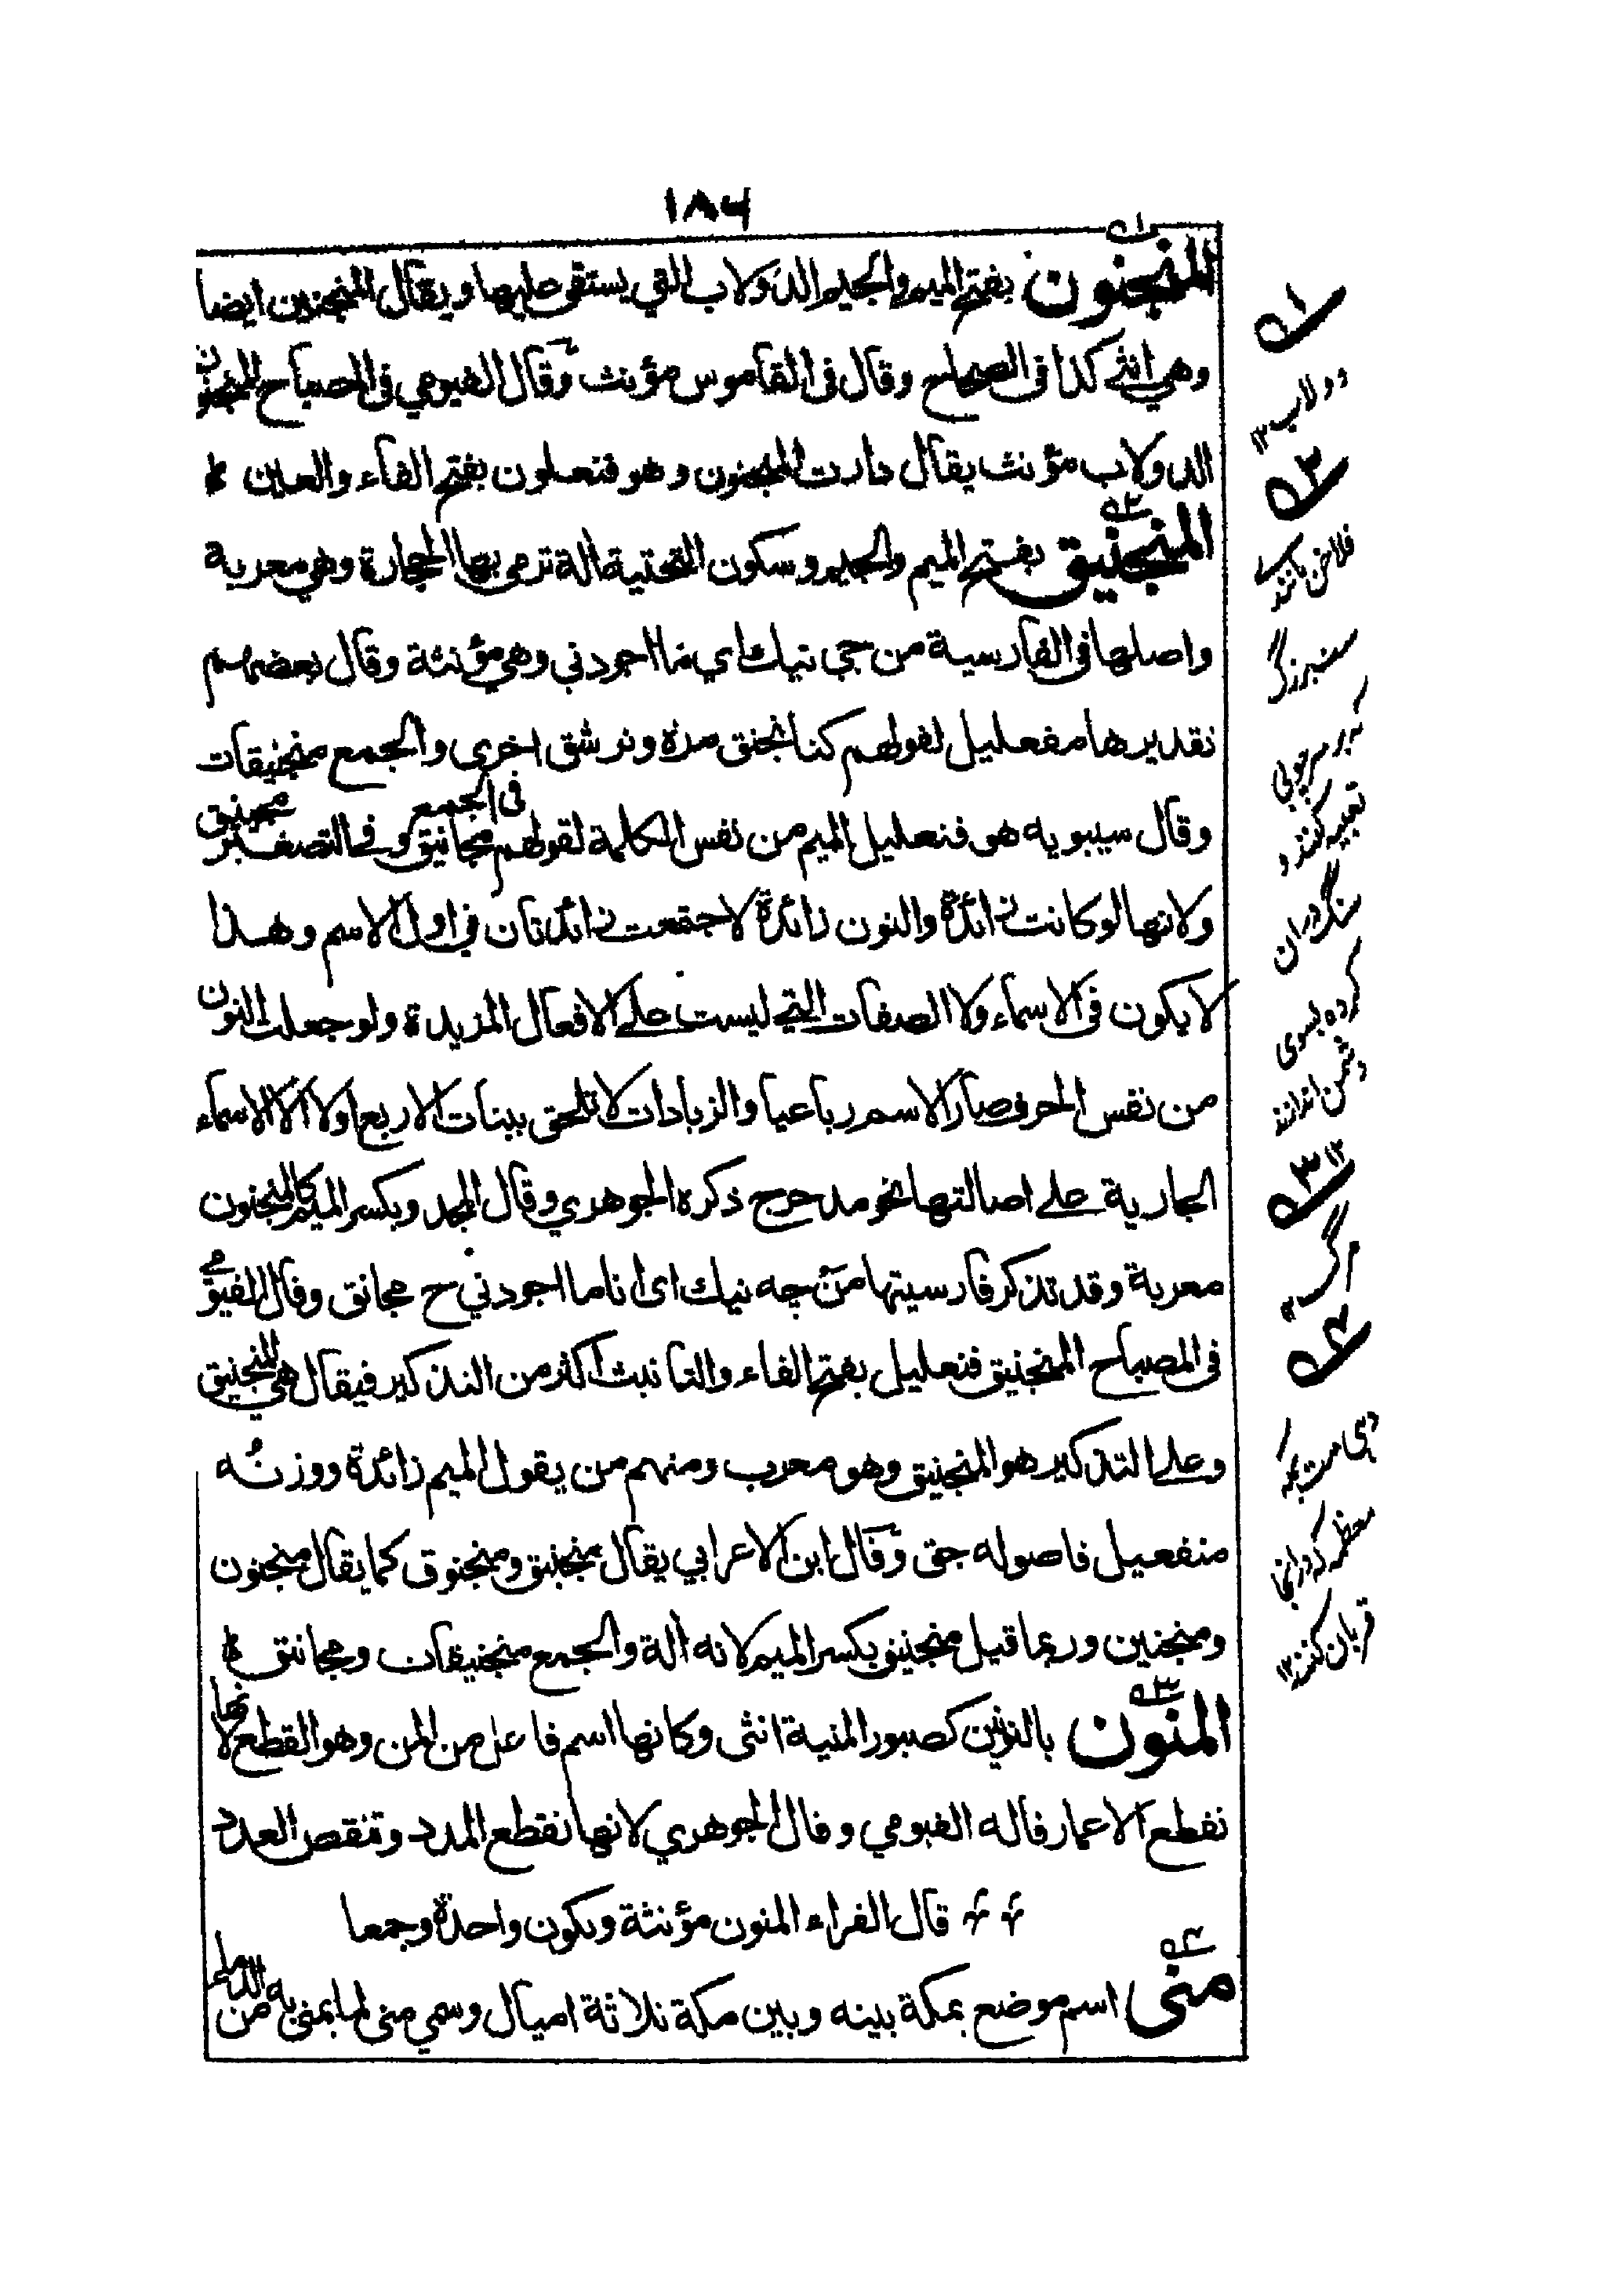 ١٨٦
المنجنون بفتح الميم والجيم الدولاب التي يستقى عليها ويقال المنجنين ايضا
وهي انثى كذا فى الصحاح وقال فى القاموس مؤنث وقال الفيومي فى المصباح المنجنون
الدولاب مؤنث يقال دارت المنجنون وهو فنعلون بفتح الفاء والعين
المنجنيق بفتح الميم والجيم وسكون التحتية الة ترمى بها الحجارة وهي معربة
واصلها فى الفارسية من جي نيك اي ما اجودني وهي مؤنثة وقال بعضهم
تقديرها مفعليل لقولهم كنا نجنق مرة ونرشق اخرى والجمع منجنيقات
وقال سيبويه هو فنعليل الميم من نفس الكلمة لقولهم فى الجمع مجانيق وفي التصغير مجينيق
ولانها لو كانت زائدة والنون زائدة لاجتمعت زائدتان في اول الاسم وهذا
لا يكون فى الاسماء ولا الصفات التي ليست على الافعال المزيدة ولو جعلت النون
من نفس الحرف صار الاسم رباعيا والزيادات لا تلحق ببنات الاربع اولا الا الاسماء
الجارية على اصالتها نحو مدحرج ذكره الجوهري وقال المجد وبكسر الميم كالمنجنون
معربة وقد تذكر فارسيتها من چه نيك اى انا ما اجودني ح مجانق وقال الفيومي
فى المصباح المنجنيق فنعليل بفتح الفاء والتانيث اكثر من التذكير فيقال هي المنجنيق
وعلى التذكير هو المنجنيق وهو معرب ومنهم من يقول الميم زائدة ووزنه
منفعيل فاصوله جنق وقال ابن الاعرابي يقال منجنيق ومنجنوق كما يقال منجنون
ومنجنين وربما قيل منجنيق بكسر الميم لانه الة والجمع منجنيقات ومجانيق
المنون بالنونين كصبور المنية انثى وكانها اسم فاعل من المن وهو القطع لانها
تقطع الاعمار قاله الفيومي وقال الجوهري لانها تقطع المدد وتنقص العدد
قال الفراء المنون مؤنثة وتكون واحدة وجمعا
منى اسم موضع بمكة بينه وبين مكة ثلاثة اميال وسمي منى لما يمنى به من الدماء
١
دولاب ١٢
٢
فلاخن مانند
بر سر چوبي
تعبيه كنند و
سنگ در ان
كرده بسوى
دشمن اندازند
١٢
٣
مرگ
٤
معظمه كه در انجا
قربان كنند ١٢